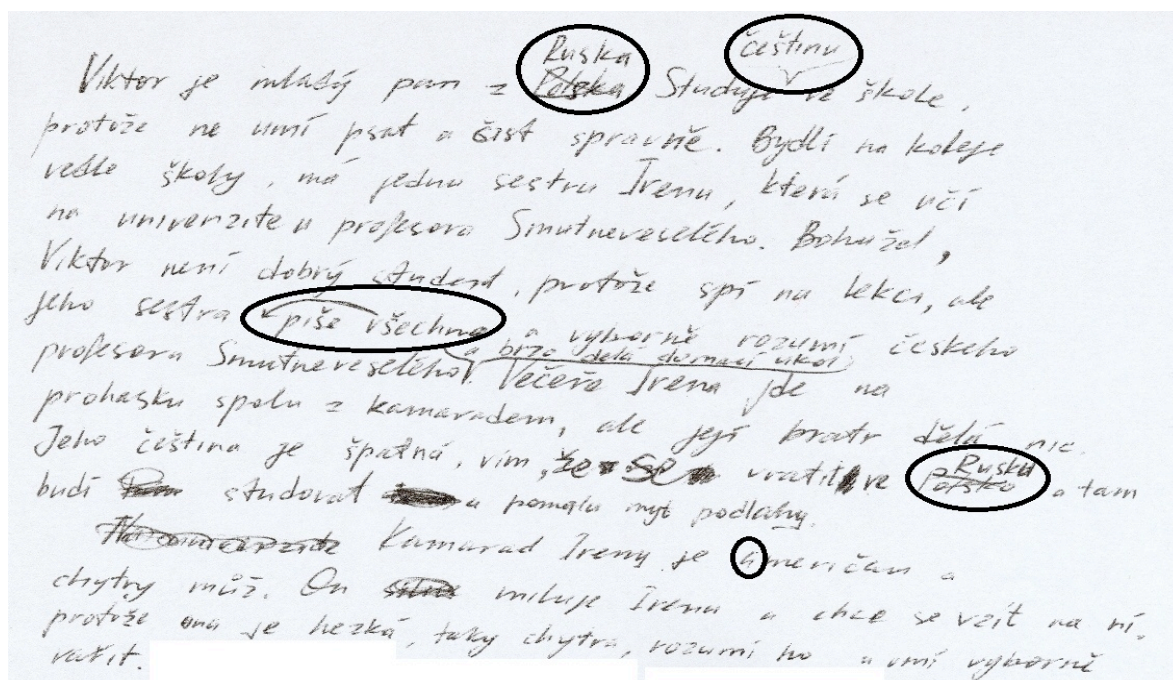 Viktor je mladý pan z Ruska Studuje češtinu ve škole,
protože ne umí psat a čist spravně. Bydlí na koleje
vedle školy, má jednu sestru Irenu, která se učí
na univerzite u profesora Smutneveselého. Bohužel,
Viktor není dobrý student, protože spí na lekci, ale
jeho sestra piše všechno a vyborně rozumí českeho
profesora Smutneveselého a brzo dela domací ukol. Večeře Irena jde na
prohasku spolu z kamaradem, ale její bratr dělá nic.
Jeho čeština je špatná, vim, že se vratit ve Rusku a tam
budí studovat a pomalu myt podlahy.
Kamarad Ireny je američan a
chytry můž. On miluje Irenu a chce se vzít na ní,
protože ona je hezká, taky chytra, rozumí ho a umí vyborně
vařit.